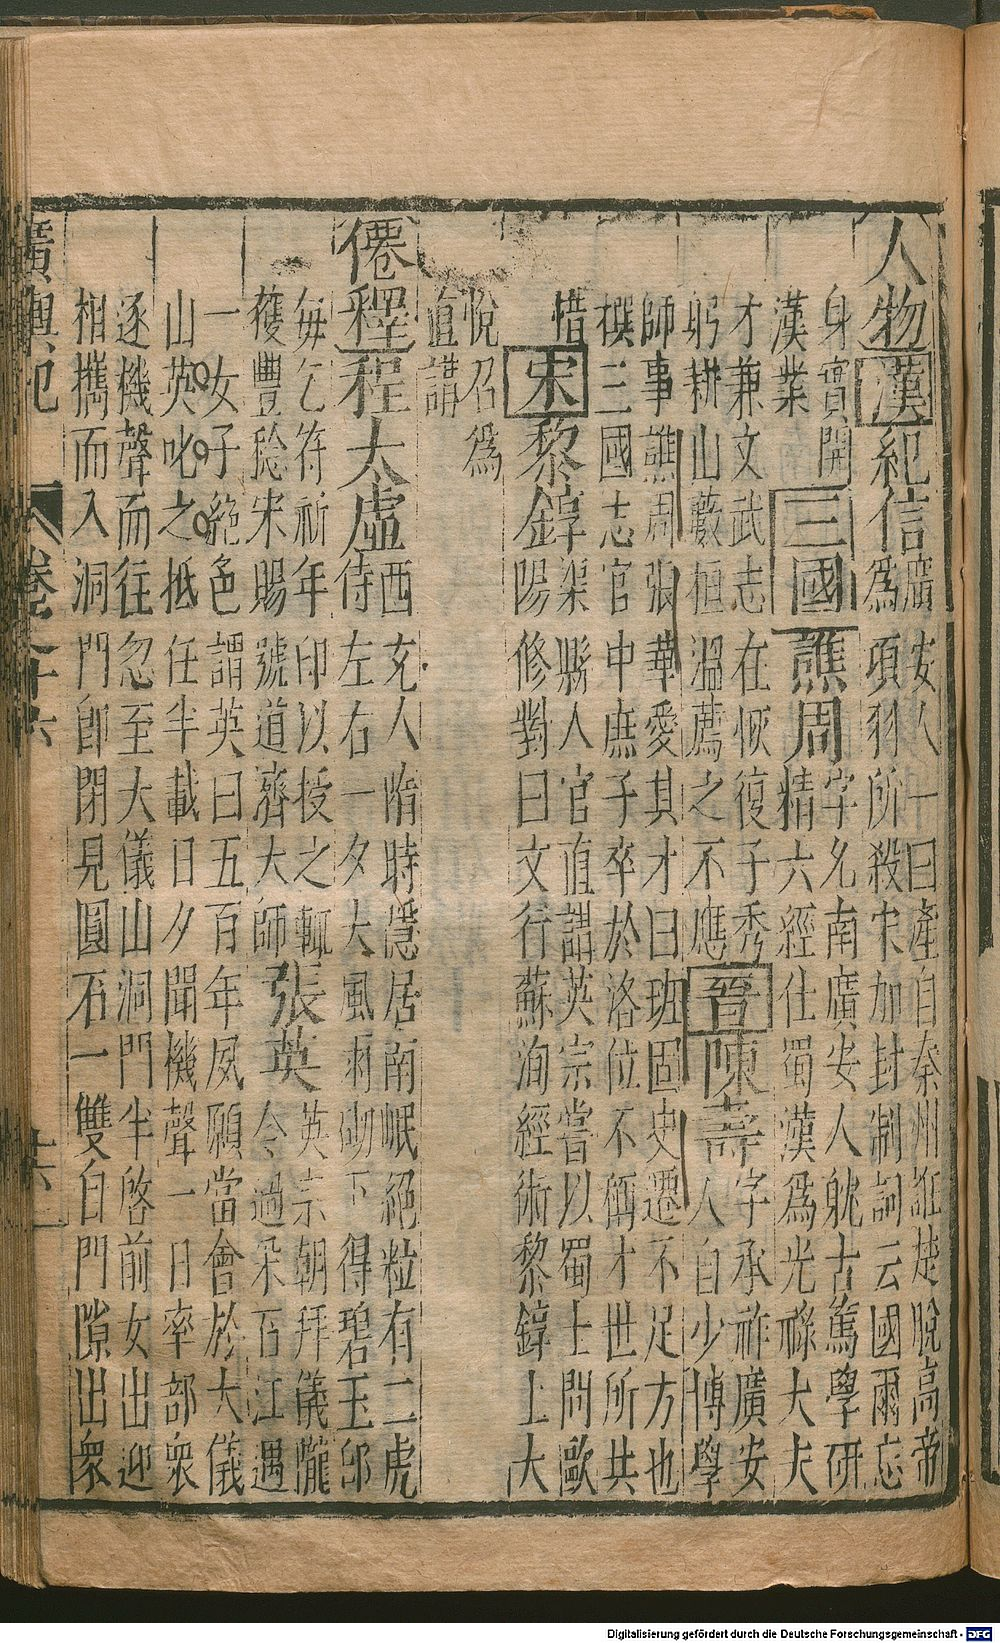 人物漢紀信廣安人一曰產自秦州誑楚脫高帝
為項羽所殺宋加封制詞云國爾忘
身實開
漢業
三國譙周字允南廣安人躭古篤學研
精六經仕蜀漢為光祿大夫
才兼文武志在恢復子秀
躬耕山藪桓溫薦之不應
晉陳壽字承祚廣安
人自少博學
師事譙周張華愛其才曰班固史遷不足方也
撰三國志官中庶子卒於洛位不稱才世所共
惜
宋黎錞渠縣人官直講英宗嘗以蜀士問歐
陽修對曰文行蘇洵經術黎錞上大
悅召為
直講
僊釋程太虛西充人隋時隱居南岷絕粒有二虎
侍左右一夕大風雨砌下得碧玉印
每乞符祈年印以授之輒
獲豐稔宋賜號道濟大師
張英英宗朝拜儀隴
令過采石江遇
一女子絕色謂英曰五百年夙願當會於大儀
山英叱之抵任半載日夕聞機聲一日率部衆
逐機聲而往忽至大儀山洞門半啓前女出迎
相攜而入洞門即閉見圓石一雙自門隙出衆
廣輿記 卷之十六 十六
Digitalisierung gefördert durch die Deutsche Forschungsgemeinschaft - DFG